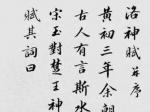 洛神賦并序
黃初三年余朝
古人有言斯水
宋玉對楚王神
賦其詞曰